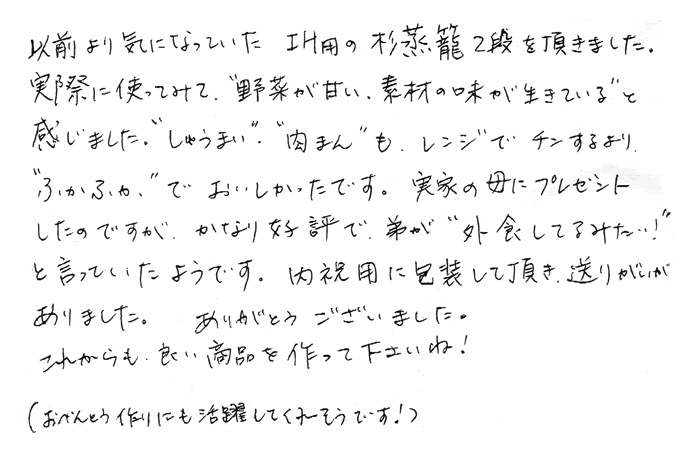 以前より気になっていた IH用の杉蒸籠2段を頂きました。
実際に使ってみて、"野菜が甘い、素材の味が生きている"と
感じました。"しゅうまい"・"肉まん"も、レンジでチンするより、
"ふかふか"でおいしかったです。実家の母にプレゼント
したのですが、かなり好評で、弟が"外食してるみたい!"
と言っていたようです。内祝用に包装して頂き、送りがいが
ありました。 ありがとうございました。
これからも、良い商品を作って下さいね!
(おべんとう作りにも活躍してくれそうです!)